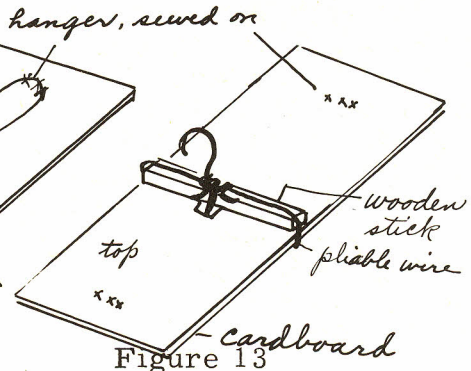 hanger, sewed on
x x x
x x x
wooden
stick
pliable wire
top
x x x
cardboard
Figure 13